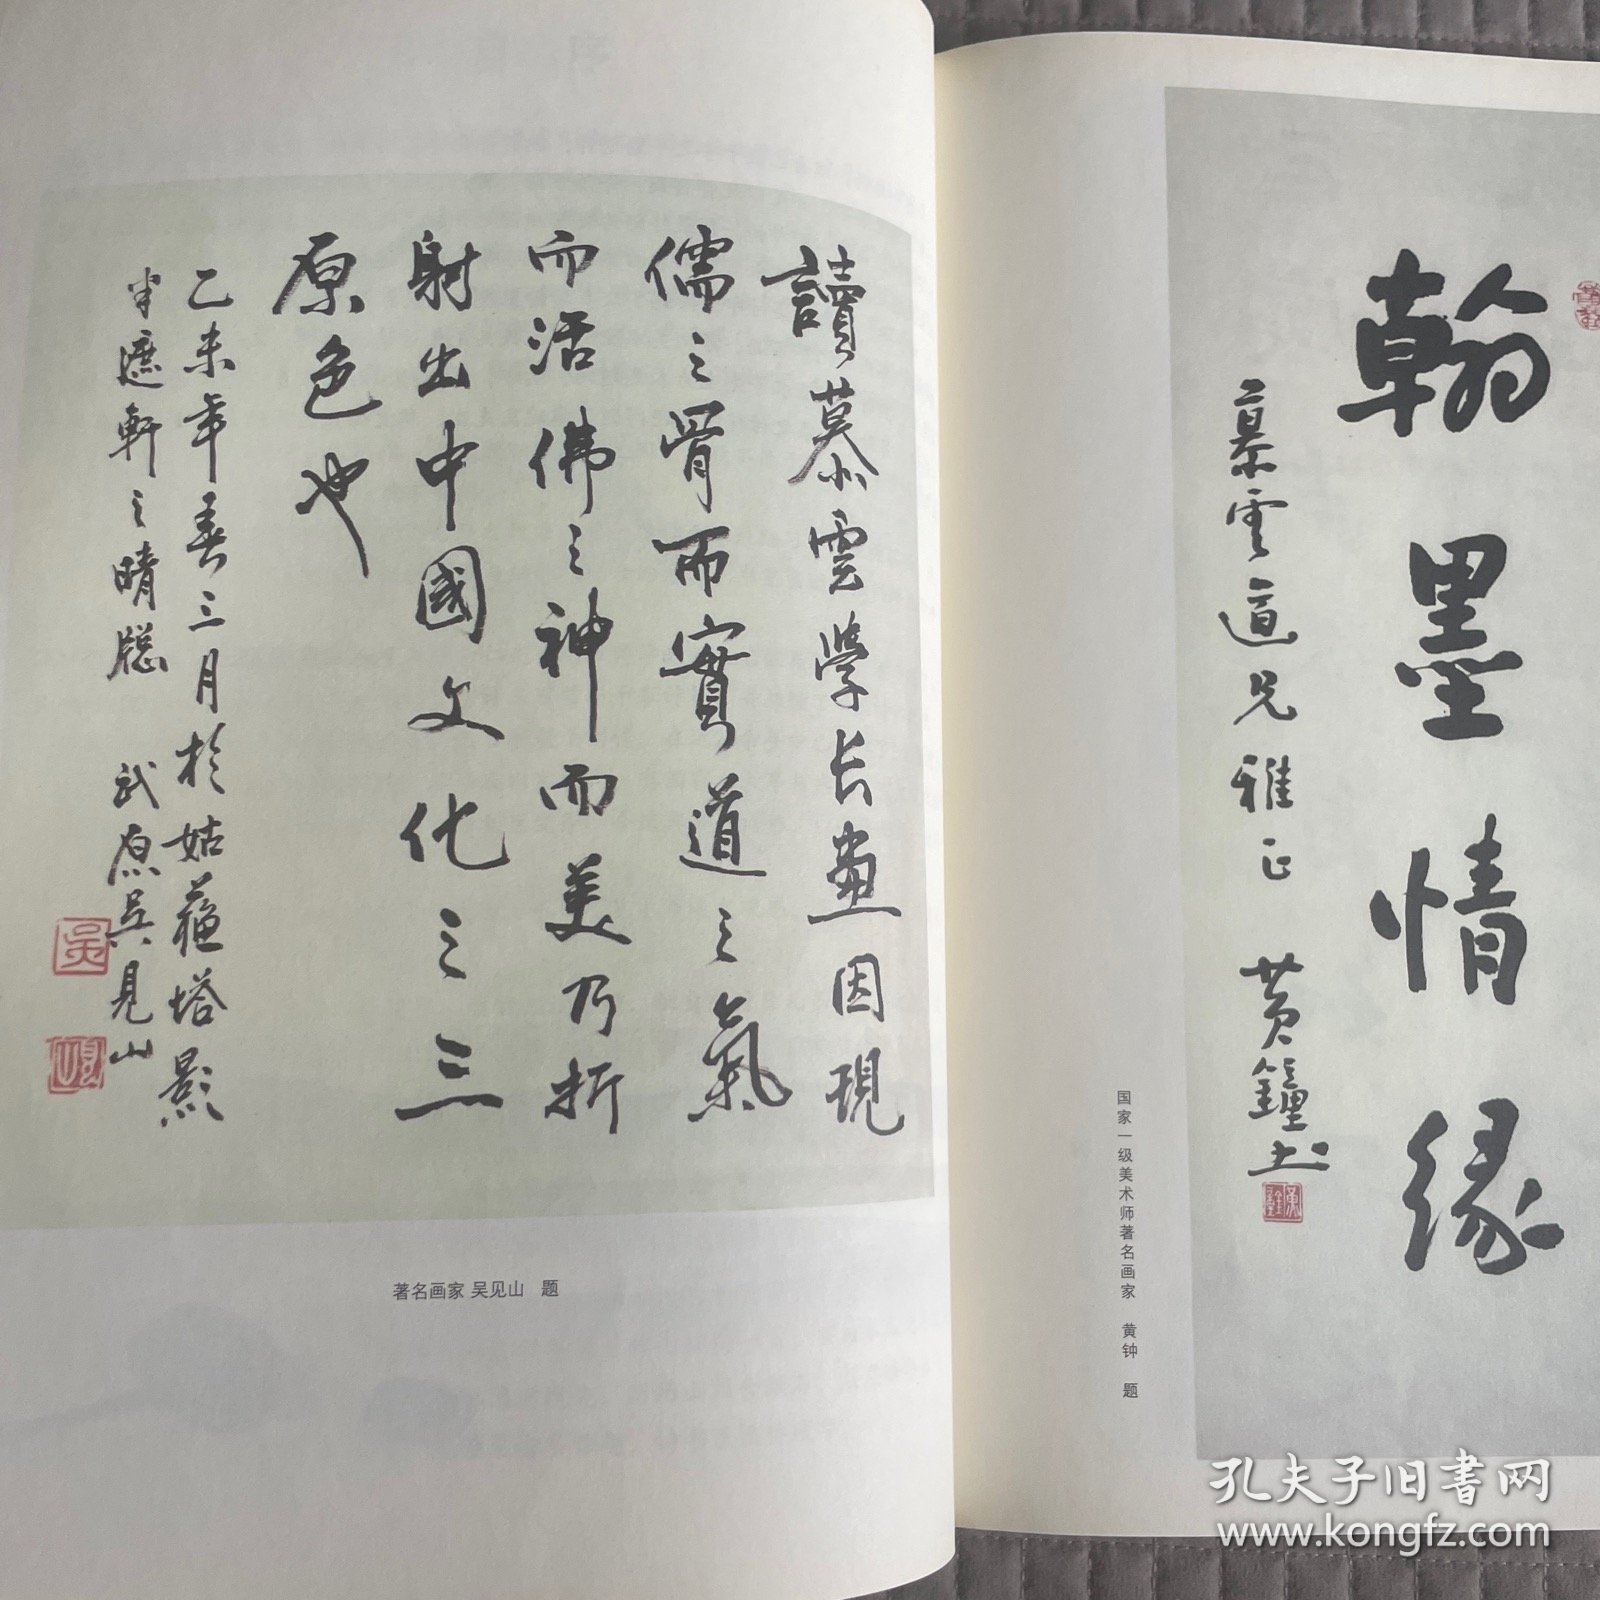 讀慕雲學长畫因現
儒之骨而實道之氣
而活佛之神而美乃折
射出中國文化之三
原色也
乙未年春三月於姑蘓塔影
半遮軒之晴窓 武原吳見山
著名画家 吴见山 题
翰墨情缘
慕雲道兄雅正 黄鐘书
国家一级美术师著名画家 黄钟 题
孔夫子旧书网
www.kongfz.com